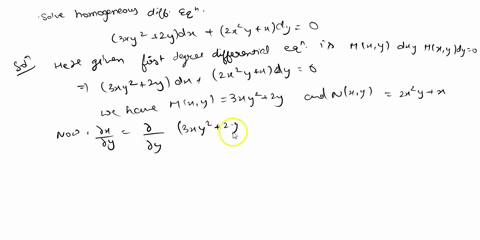 Solve homogeneous diff. Eqⁿ.
(3xy² + 2y)dx + (2x²y + x)dy = 0
Solⁿ Here given first degree differential eqⁿ. is M(x,y) dxy M(x,y)dy=0
⇒ (3xy² + 2y) dx + (2x²y + x) dy = 0
We have M(x,y) = 3xy² + 2y and N(x,y) = 2x²y + x
Now, ∂x/∂y = ∂/∂y (3xy² + 2y